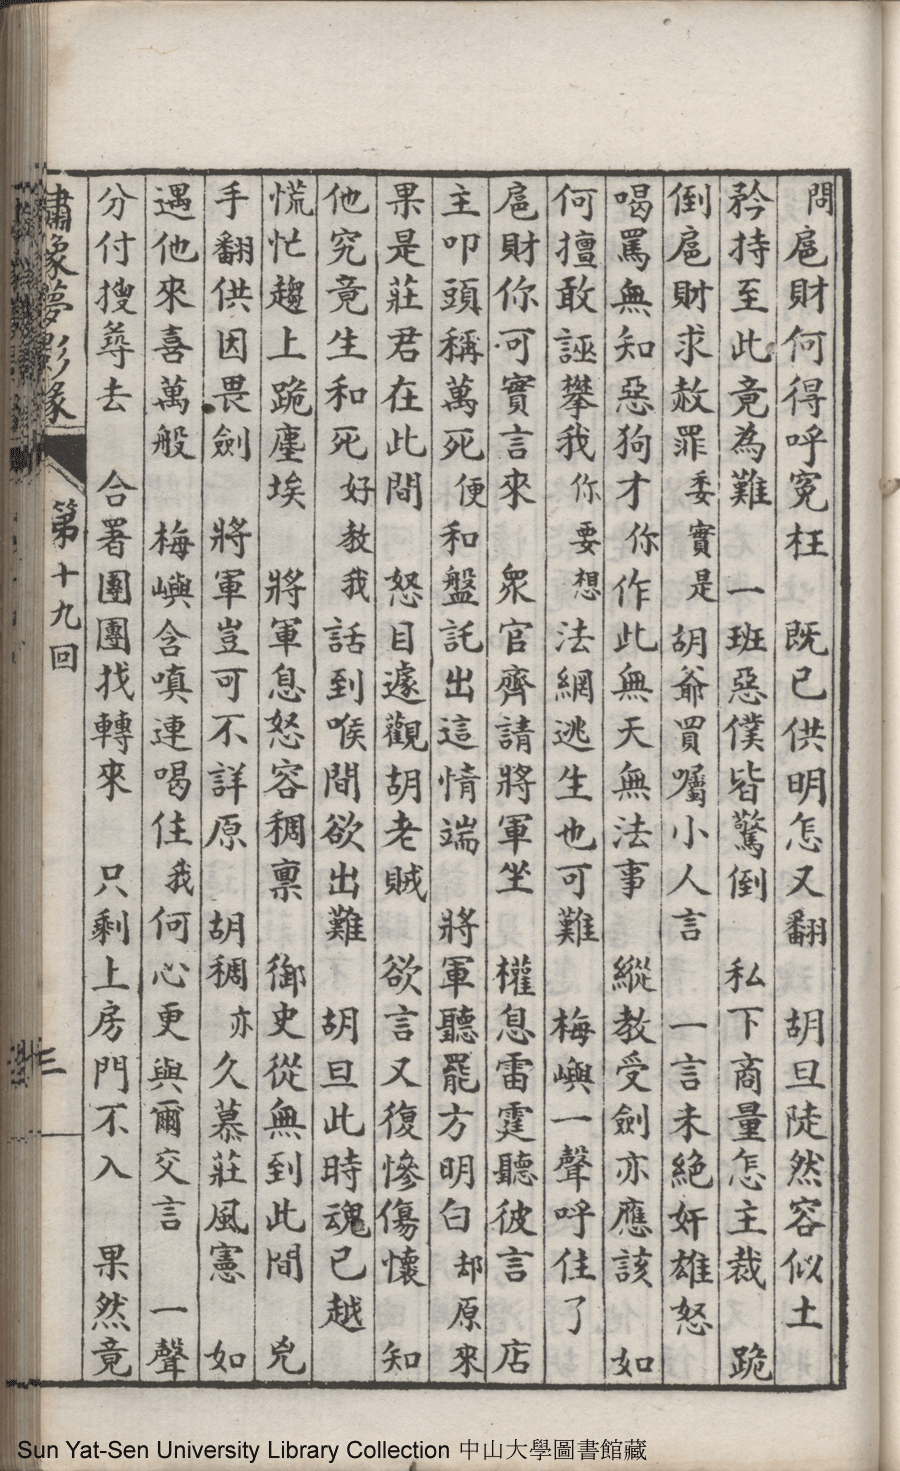 問扈財何得呼冤枉　既已供明怎又翻　胡旦陡然容似土
矜持至此竟為難　一班惡僕皆驚倒　私下商量怎主裁　跪
倒扈財求赦罪委實是胡爺買囑小人言　一言未絕奸雄怒
喝罵無知惡狗才你作此無天無法事　縱教受劍亦應該　如
何擅敢誣攀我你要想法網逃生也可難　梅嶼一聲呼住了
扈財你可實言來　眾官齊請將軍坐　權息雷霆聽彼言　店
主叩頭稱萬死便和盤託出這情端　將軍聽罷方明白却原來
果是莊君在此間　怒目遽觀胡老賊　欲言又復慘傷懷　知
他究竟生和死好教我話到喉間欲出難　胡旦此時魂已越
慌忙趨上跪塵埃　將軍息怒容稠禀　御史從無到此間　兇
手翻供因畏劍　將軍豈可不詳原　胡稠亦久慕莊風憲　如
遇他來喜萬般　梅嶼含嗔連喝住我何心更與爾交言　一聲
分付搜尋去　合署團團找轉來　只剩上房門不入　果然竟
繡像夢影緣　第十九回
Sun Yat-Sen University Library Collection 中山大學圖書館藏